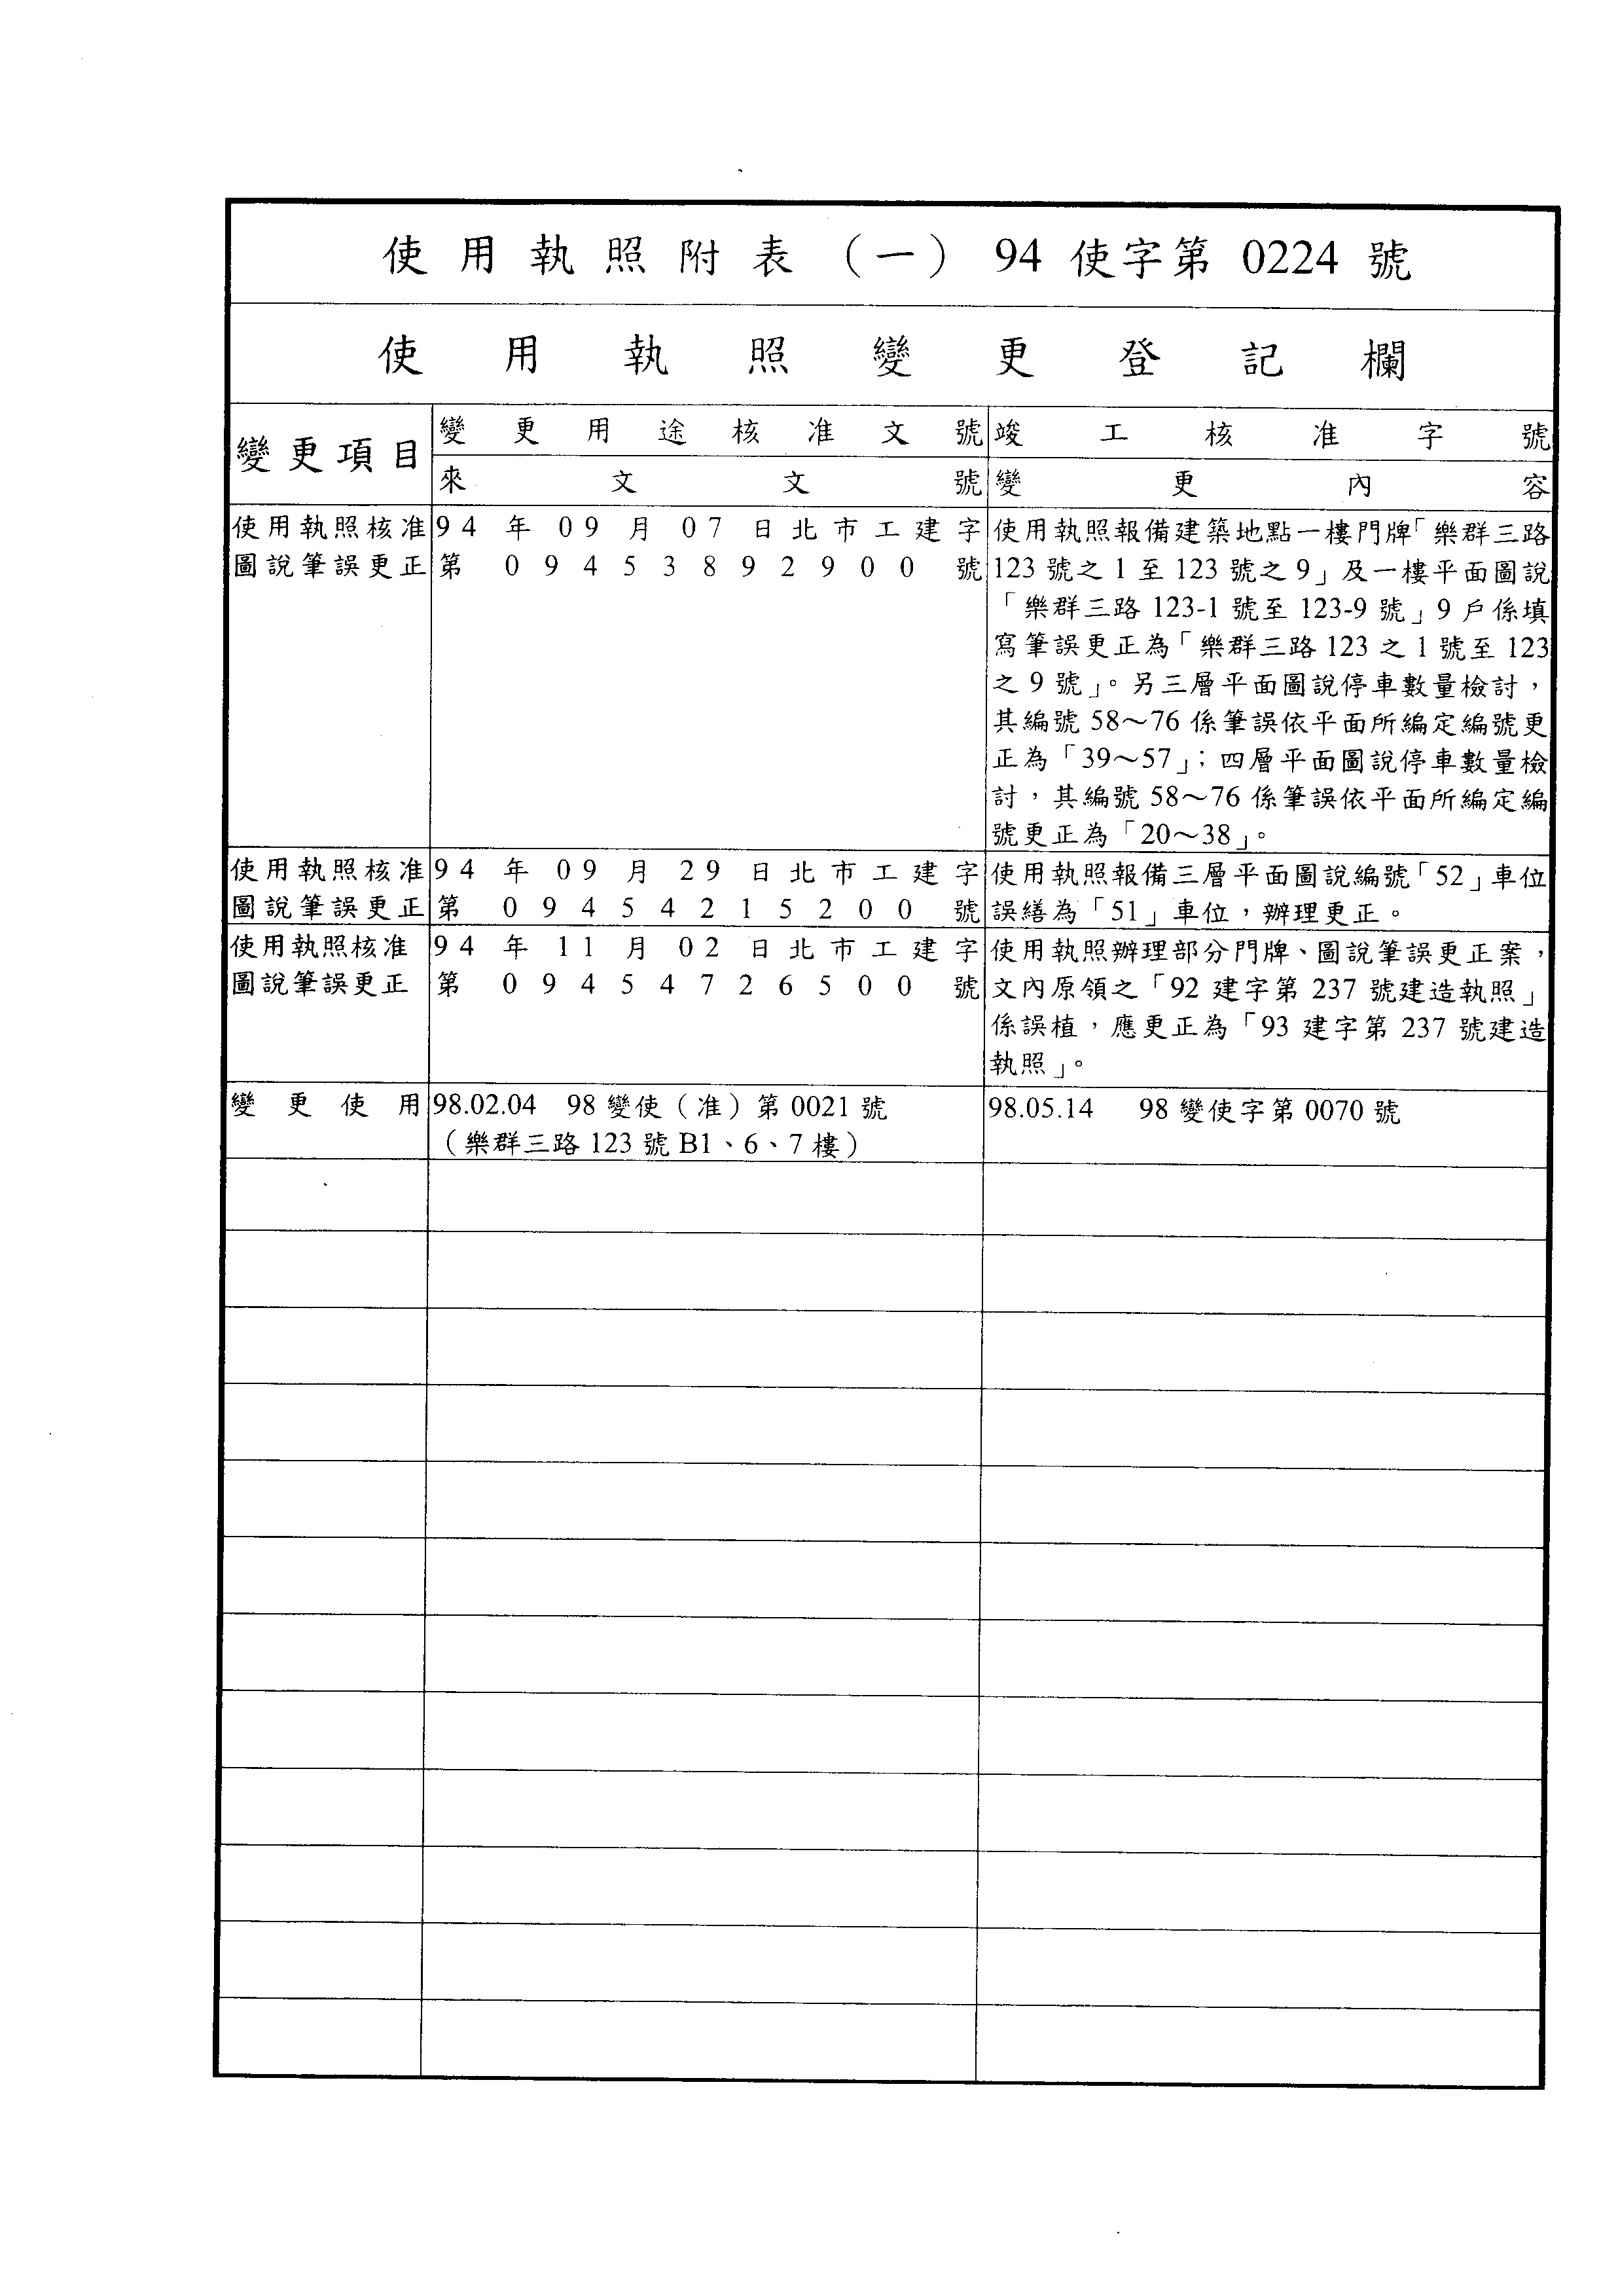 使用執照附表（一） 94 使字第 0224 號
使用執照變更登記欄
變更項目
變更用途核准文號
竣工核准字號
來文文號
變更內容
使用執照核准
圖說筆誤更正
94 年 09 月 07 日北市工建字
第 09453892900 號
使用執照報備建築地點一樓門牌「樂群三路
123 號之 1 至 123 號之 9」及一樓平面圖說
「樂群三路 123-1 號至 123-9 號」9 戶係填
寫筆誤更正為「樂群三路 123 之 1 號至 123
之 9 號」。另三層平面圖說停車數量檢討，
其編號 58～76 係筆誤依平面所編定編號更
正為「39～57」；四層平面圖說停車數量檢
討，其編號 58～76 係筆誤依平面所編定編
號更正為「20～38」。
使用執照核准
圖說筆誤更正
94 年 09 月 29 日北市工建字
第 09454215200 號
使用執照報備三層平面圖說編號「52」車位
誤繕為「51」車位，辦理更正。
使用執照核准
圖說筆誤更正
94 年 11 月 02 日北市工建字
第 09454726500 號
使用執照辦理部分門牌、圖說筆誤更正案，
文內原領之「92 建字第 237 號建造執照」
係誤植，應更正為「93 建字第 237 號建造
執照」。
變更使用
98.02.04 98 變使（准）第 0021 號
（樂群三路 123 號 B1、6、7 樓）
98.05.14 98 變使字第 0070 號